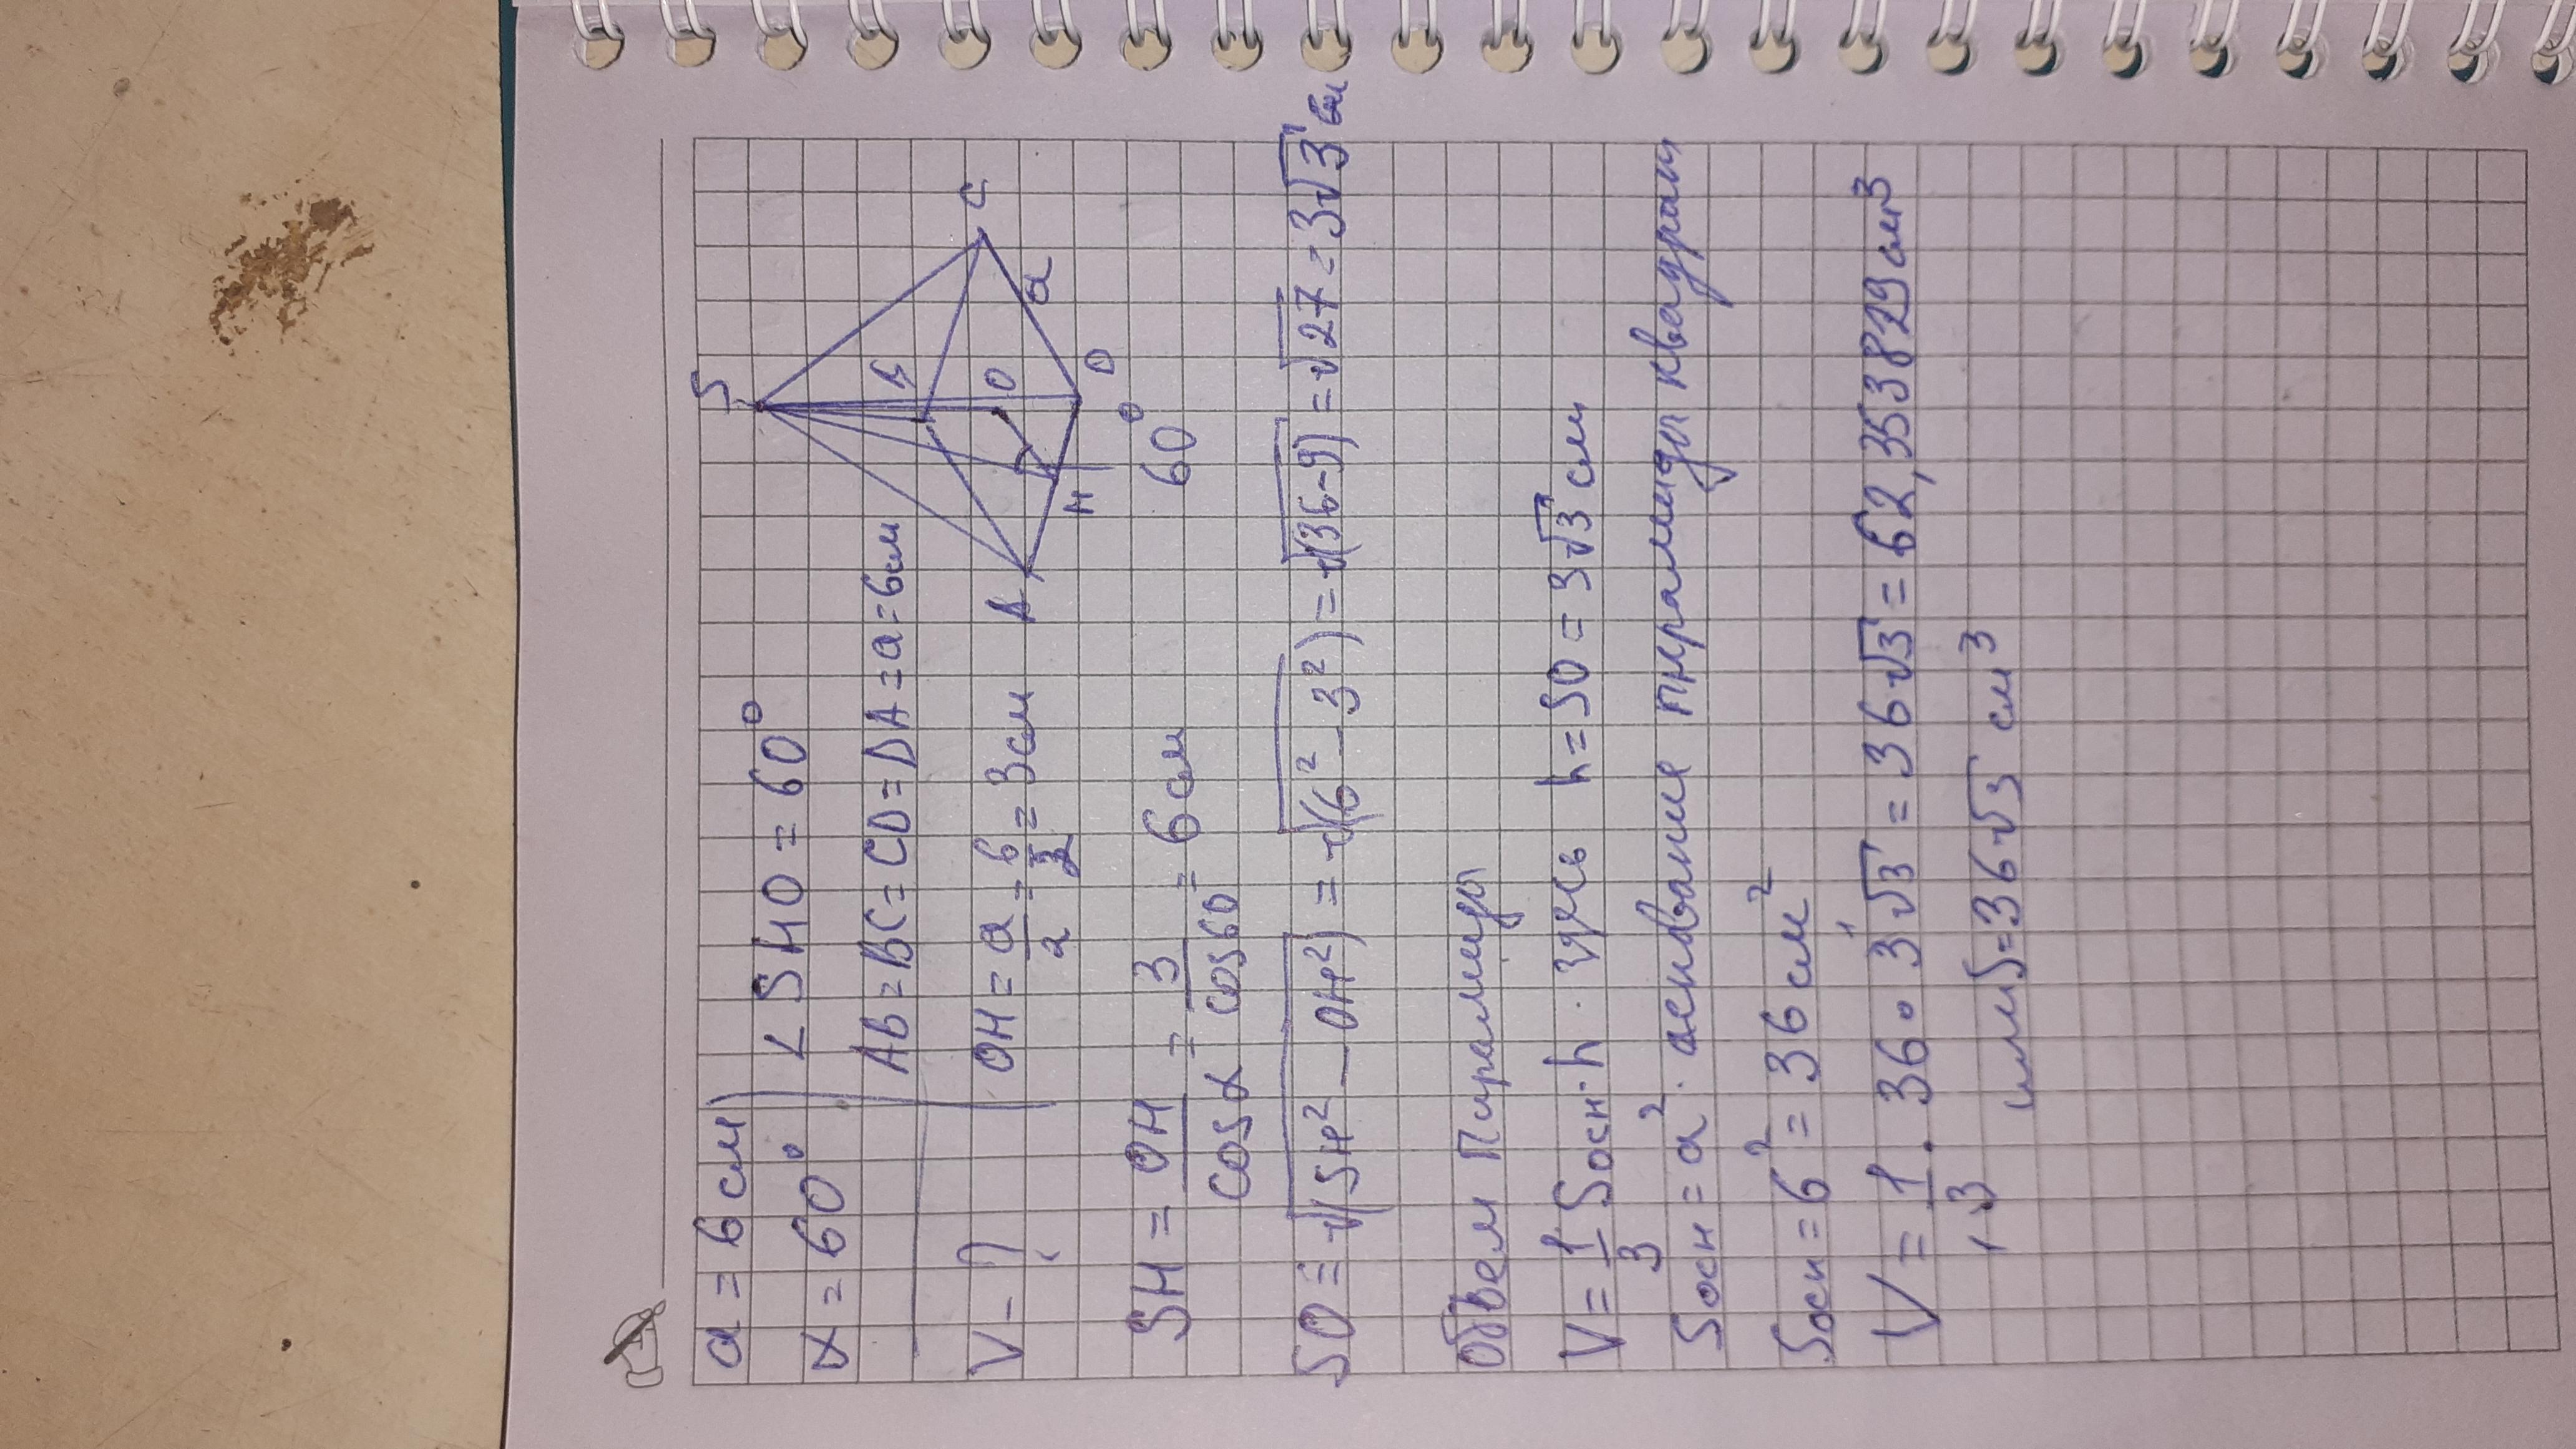 a = 6 см
∠ SHO = 60°
α = 60°
AB = BC = CD = DA = a = 6 см
V - ?
OH = a/2 = 6/2 = 3 см
S
B
C
O
A
H
D
a
60°
SH = OH/cosα = 3/cos60 = 6 см
SO = √(SH² - OH²) = √(6² - 3²) = √(36-9) = √27 = 3√3 см
Объем Пирамиды
V = 1/3 Sосн · h · здесь h = SO = 3√3 см
Sосн = a² · основание пирамиды квадрат
Sосн = 6² = 36 см²
V = 1/3 · 36 · 3√3 = 36√3 = 62,353829 см³
или S = 36√3 см³